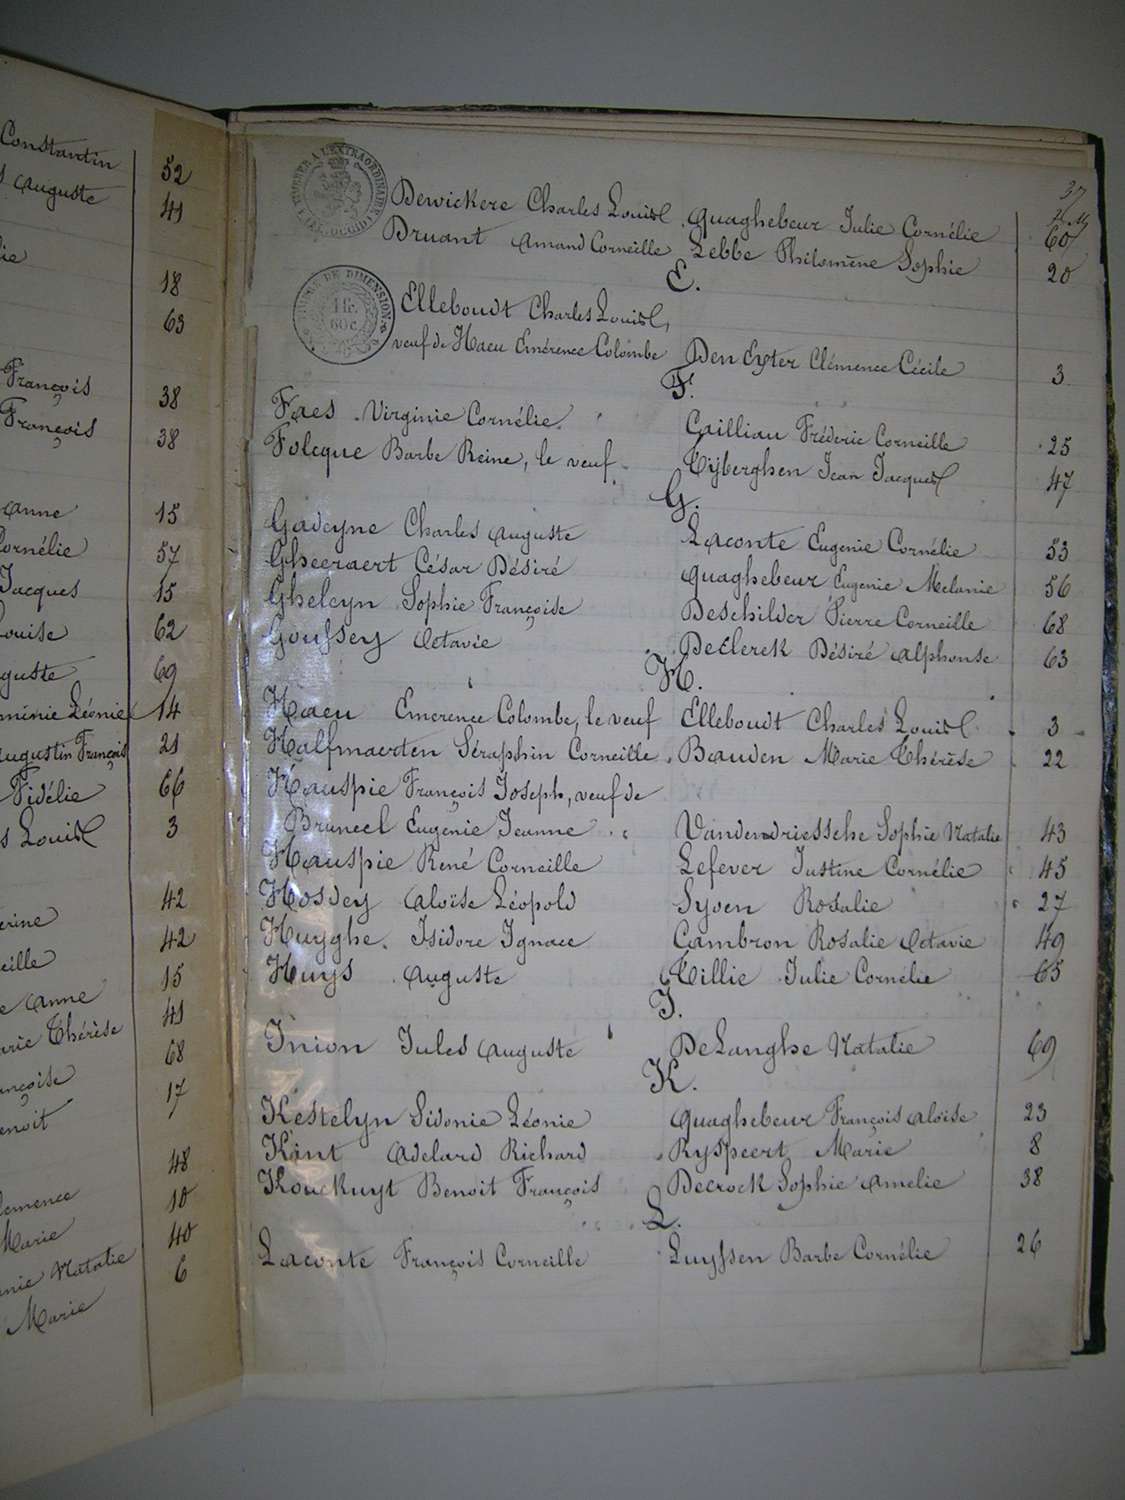 Constantin 52
Auguste 41
18
63
François 38
François 38
Anne 15
Cornélie 57
Jacques 15
Louise 62
69
Léonie 14
Augustin François 21
Fidélie 66
Louis 3
42
42
Anne 15
41
Marie Thérèse 68
17
Benoit
48
10
Marie 40
Natalie 6
Marie
TIMBRE DE DIMENSION
1 fr.
60 c.
37
Dewickere Charles Louis Quaghebeur Julie Cornélie 60
Druant Amand Corneille Lebbe Philomène Sophie 20
E.
Elleboudt Charles Louis,
veuf de Haeu Emérence Colombe Den Eyter Clémence Cécile 3
F.
Faes Virginie Cornélie Cailliau Fréderic Corneille 25
Folcque Barbe Reine, le veuf Tijberghen Jean Jacques 47
G.
Gadeyne Charles Auguste Laconte Eugenie Cornélie 53
Gheeraert César Désiré Quaghebeur Eugenie Melanie 56
Gheleyn Sophie Françoise Deschilder Pierre Corneille 68
Goussey Octavie DeClerck Désiré Alphonse 63
H.
Haeu Emerence Colombe, le veuf Elleboudt Charles Louis 3
Halfmaerten Séraphin Corneille Bauden Marie Thérèse 22
Hauspie François Joseph, veuf de
Bruneel Eugenie Jeanne Vandendriessche Sophie Natalie 43
Hauspie René Corneille Lefever Justine Cornélie 45
Hosdey Aloïse Léopold Syoen Rosalie 27
Huyghe Isidore Ignace Cambron Rosalie Octavie 49
Huys Auguste Tillie Julie Cornélie 65
I.
Inion Jules Auguste DeLanghe Natalie 69
K.
Kestelyn Sidonie Léonie Quaghebeur François Aloïse 23
Kint Adelard Richard Ryspeert Marie 8
Kouckuyt Benoit François Decrock Sophie Amelie 38
L.
Laconte François Corneille Luyssen Barbe Cornélie 26